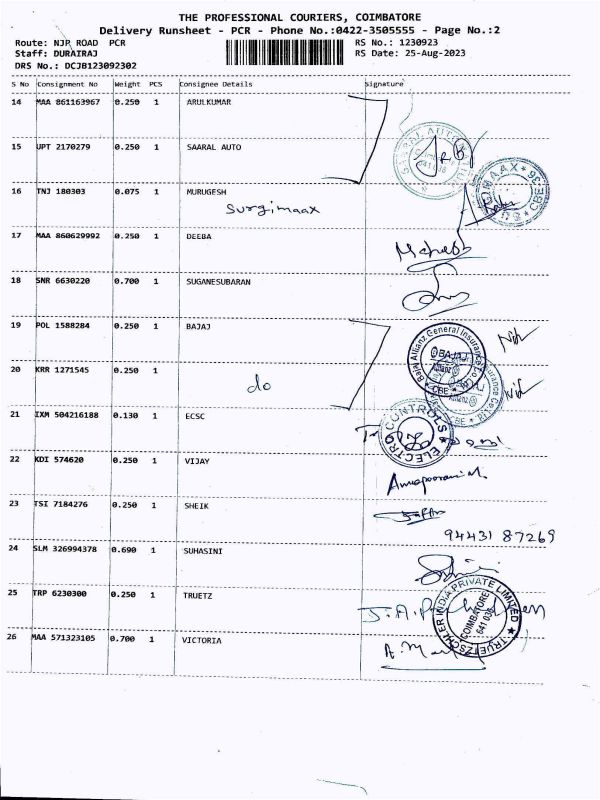 THE PROFESSIONAL COURIERS, COIMBATORE
Delivery Runsheet - PCR - Phone No.:0422-3505555 - Page No.:2
Route: NJP ROAD PCR RS No.: 1230923
Staff: DURAIRAJ RS Date: 25-Aug-2023
DRS No.: DCJB123092302
S No Consignment No Weight PCS Consignee Details Signature
14 MAA 861163967 0.250 1 ARULKUMAR
15 UPT 2170279 0.250 1 SAARAL AUTO
SAARAL AUTO
641
16 TNJ 180303 0.075 1 MURUGESH
Surgimaax
CBE
17 MAA 860629992 0.250 1 DEEBA
18 SNR 6630220 0.700 1 SUGANESUBARAN
19 POL 1588284 0.250 1 BAJAJ
Bajaj Allianz General Insurance Co
BAJAJ
Allianz
CBE
20 KRR 1271545 0.250 1
do
21 IXM 504216188 0.130 1 ECSC
ELECTRO CONTROLS
22 KDI 574620 0.250 1 VIJAY
23 TSI 7184276 0.250 1 SHEIK
94431 87269
24 SLM 326994378 0.690 1 SUHASINI
25 TRP 6230300 0.250 1 TRUETZ
TRUETZSCHLER INDIA PRIVATE LIMITED
COIMBATORE
641 036
26 MAA 571323105 0.700 1 VICTORIA